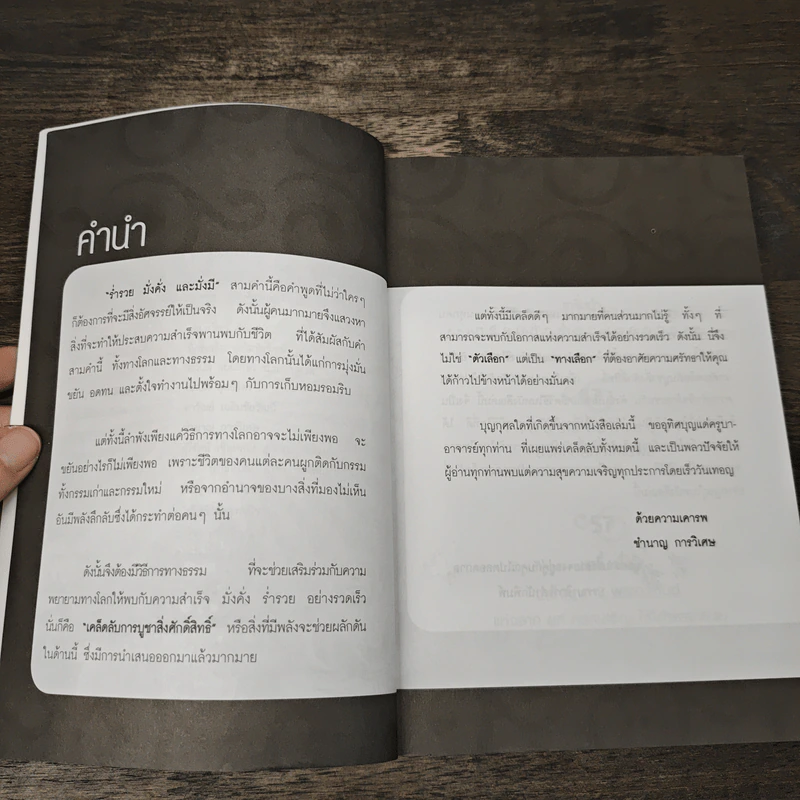 คำนำ
"ร่ำรวย มั่งคั่ง และมั่งมี" สามคำนี้คือคำพูดที่ไม่ว่าใครๆ
ก็ต้องการที่จะมีสิ่งอัศจรรย์ให้เป็นจริง ดังนั้นผู้คนมากมายจึงแสวงหา
สิ่งที่จะทำให้ประสบความสำเร็จพานพบกับชีวิต ที่ได้สัมผัสกับคำ
สามคำนี้ ทั้งทางโลกและทางธรรม โดยทางโลกนั้นได้แก่การมุ่งมั่น
ขยัน อดทน และตั้งใจทำงานไปพร้อมๆ กับการเก็บหอมรอมริบ
แต่ทั้งนี้ลำพังเพียงแค่วิธีการทางโลกอาจจะไม่เพียงพอ จะ
ขยันอย่างไรก็ไม่เพียงพอ เพราะชีวิตของคนแต่ละคนผูกติดกับกรรม
ทั้งกรรมเก่าและกรรมใหม่ หรือจากอำนาจของบางสิ่งที่มองไม่เห็น
อันมีพลังลึกลับซึ่งได้กระทำต่อคนๆ นั้น
ดังนั้นจึงต้องมีวิธีการทางธรรม ที่จะช่วยเสริมร่วมกับความ
พยายามทางโลกให้พบกับความสำเร็จ มั่งคั่ง ร่ำรวย อย่างรวดเร็ว
นั่นก็คือ "เคล็ดลับการบูชาสิ่งศักดิ์สิทธิ์" หรือสิ่งที่มีพลังจะช่วยผลักดัน
ในด้านนี้ ซึ่งมีการนำเสนอออกมาแล้วมากมาย
แต่ทั้งนี้มีเคล็ดดีๆ มากมายที่คนส่วนมากไม่รู้ ทั้งๆ ที่
สามารถจะพบกับโอกาสแห่งความสำเร็จได้อย่างรวดเร็ว ดังนั้น นี่จึง
ไม่ใช่ "ตัวเลือก" แต่เป็น "ทางเลือก" ที่ต้องอาศัยความศรัทธาให้คุณ
ได้ก้าวไปข้างหน้าได้อย่างมั่นคง
บุญกุศลใดที่เกิดขึ้นจากหนังสือเล่มนี้ ขออุทิศบุญแด่ครูบา-
อาจารย์ทุกท่าน ที่เผยแพร่เคล็ดลับทั้งหมดนี้ และเป็นพลวปัจจัยให้
ผู้อ่านทุกท่านพบแต่ความสุขความเจริญทุกประการโดยเร็ววันเทอญ
ด้วยความเคารพ
ชำนาญ การวิเศษ